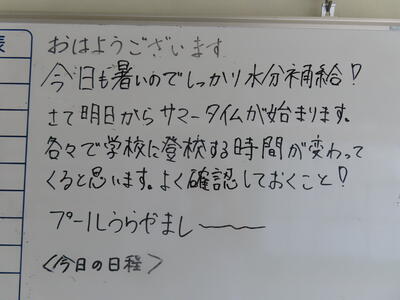 表
おはようございます
今日も暑いのでしっかり水分補給!
さて明日からサマータイムが始まります。
各々で学校に登校する時間が変わって
くると思います。よく確認しておくこと!
プールうらやまし〜〜
<今日の日程>